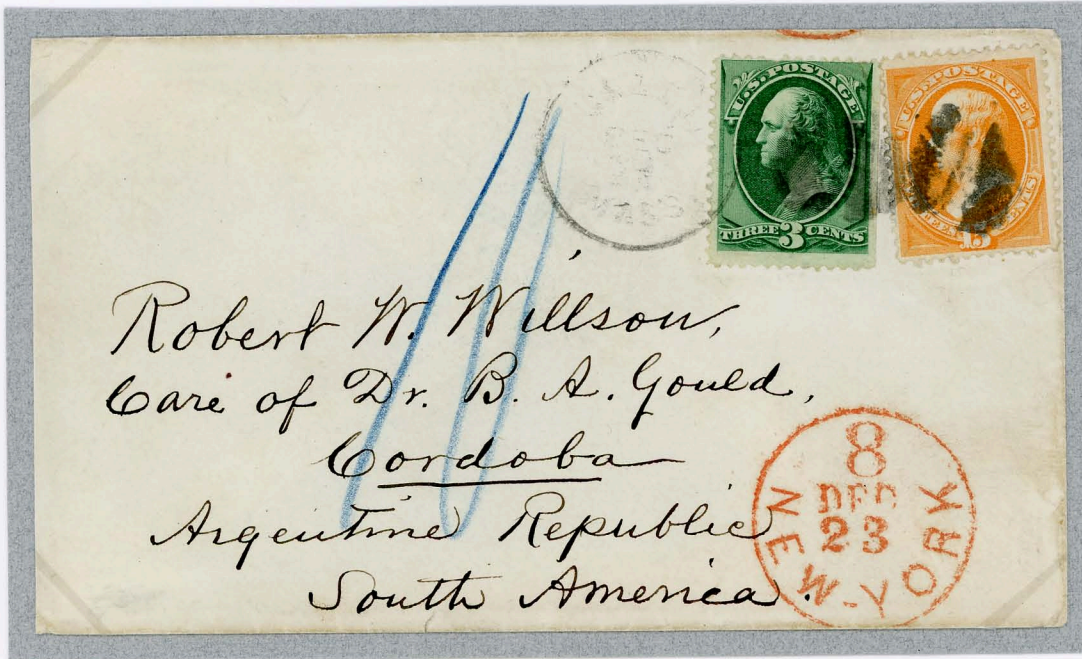 MASS
U.S. POSTAGE
THREE 3 CENTS
U.S. POSTAGE
15 CENTS
10
Robert W. Willson,
Care of Dr. B. A. Gould,
Cordoba
Argentine Republic
South America.
8
DEC
23
NEW-YORK